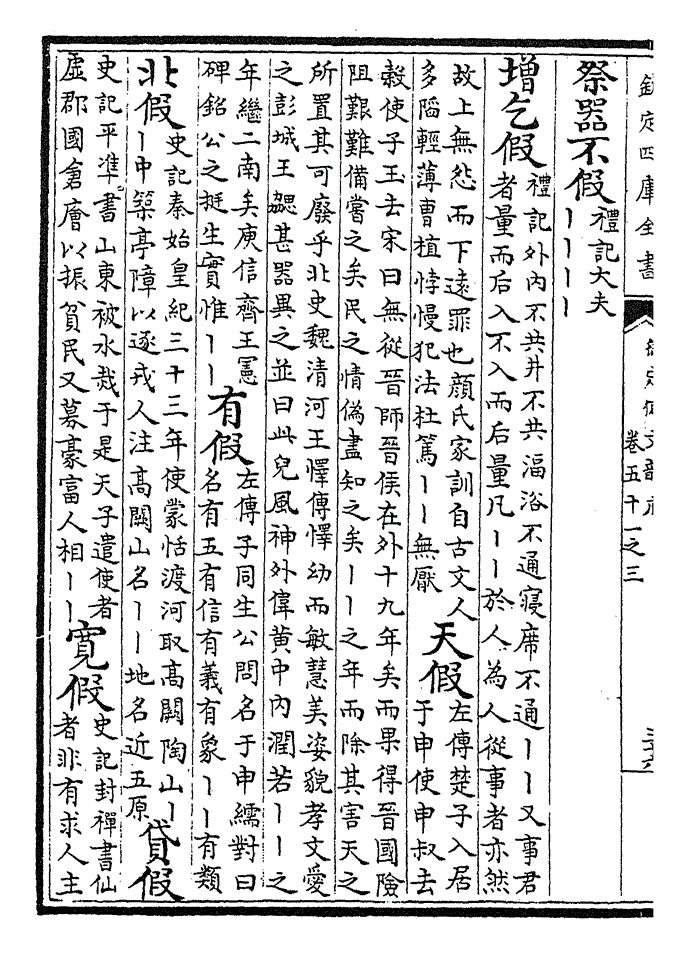 欽定四庫全書
御定佩文韻府
卷五十一之三
祭器不假
禮記大夫
丨丨丨丨
增乞假
禮記外內不共井不共湢浴不通寢席不通丨丨又事君
者量而后入不入而后量凡丨丨於人為人從事者亦然
故上無怨而下遠罪也顔氏家訓自古文人
多䧟輕薄曹植悖慢犯法杜篤丨丨無厭
天假
左傳楚子入居
于申使申叔去
穀使子玉去宋曰無從晉師晉侯在外十九年矣而果得晉國險
阻艱難備嘗之矣民之情偽盡知之矣丨丨之年而除其害天之
所置其可廢乎北史魏清河王懌傳懌幼而敏慧美姿貌孝文愛
之彭城王勰甚器異之並曰此兒風神外偉黃中內潤若丨丨之
年繼二南矣庾信齊王憲
碑銘公之挺生實惟丨丨
有假
左傳子同生公問名于申繻對曰
名有五有信有義有象丨丨有類
北假
史記秦始皇紀三十三年使蒙恬渡河取高闕陶山丨
丨中築亭障以逐戎人注高闕山名丨丨地名近五原
貸假
史記平準書山東被水烖于是天子遣使者
虛郡國倉廥以振貧民又募豪富人相丨丨
寬假
史記封禪書仙
者非有求人主